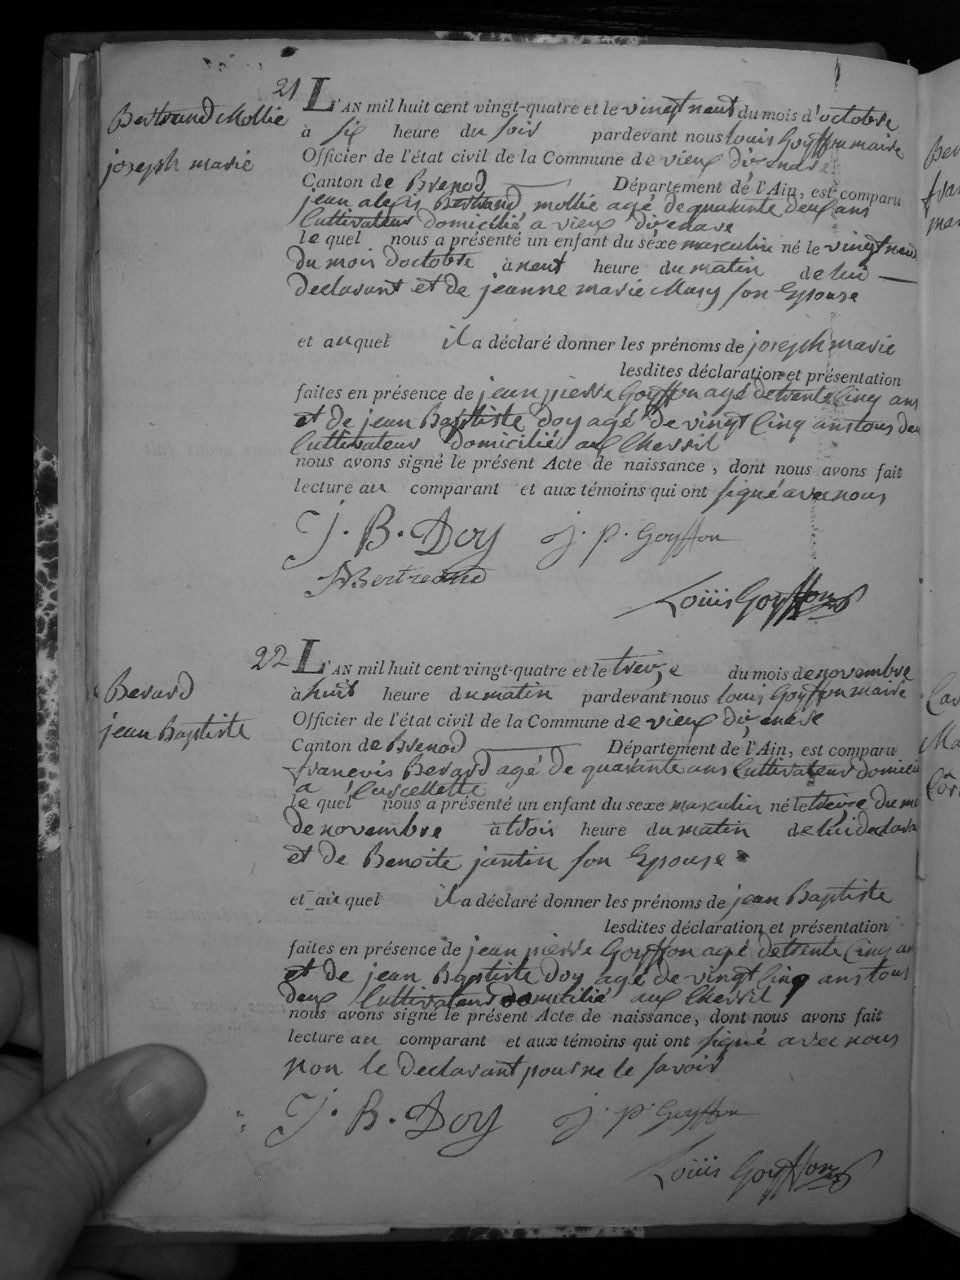 21
Bertrand Mollie
joseph marie
L'AN mil huit cent vingt-quatre et le vingt neuf du mois d'octobre
à six heure du soir pardevant nous louis Goyffon maire
Officier de l'état civil de la Commune de vieux d'izenave
Canton de Brenod Département de l'Ain, est comparu
jean alexis Bertrand mollie agé de quarante deux ans
Cultivateur domicilié a vieux d'izenave
le quel nous a présenté un enfant du séxe masculin né le vingt neuf
du mois d'octobre à neuf heure du matin de lui
declarant et de jeanne marie Mary son Epouse
et auquel il a déclaré donner les prénoms de joseph marie
lesdites déclaration et présentation
faites en présence de jean pierre Goyffon agé de trente Cinq ans
et de jean Baptiste Doy agé de vingt Cinq ans tous deux
Cultivateur domiciliés aux Chevril
nous avons signé le présent Acte de naissance, dont nous avons fait
lecture au comparant et aux témoins qui ont signé avec nous
J. B. Doy j. p. Goyffon
Bertrand
Louis Goyffon
22
Berard
jean Baptiste
L'AN mil huit cent vingt-quatre et le treize du mois de novembre
à huit heure du matin pardevant nous louis Goyffon maire
Officier de l'état civil de la Commune de vieux d'izenave
Canton de Brenod Département de l'Ain, est comparu
françois Berard agé de quarante ans Cultivateur domicilié
a
le quel nous a présenté un enfant du sexe masculin né le treize du mois
de novembre à trois heure du matin de lui declarant
et de Benoite jantin son Epouse
et au quel il a déclaré donner les prénoms de jean Baptiste
lesdites déclaration et présentation
faites en présence de jean pierre Goyffon agé de trente Cinq ans
et de jean Baptiste Doy agé de vingt Cinq ans tous
deux Cultivateurs domicilié aux Chevril
nous avons signé le présent Acte de naissance, dont nous avons fait
lecture au comparant et aux témoins qui ont signé avec nous
non le declarant pour ne le savoir
J. B. Doy j. p. Goyffon
Louis Goyffon